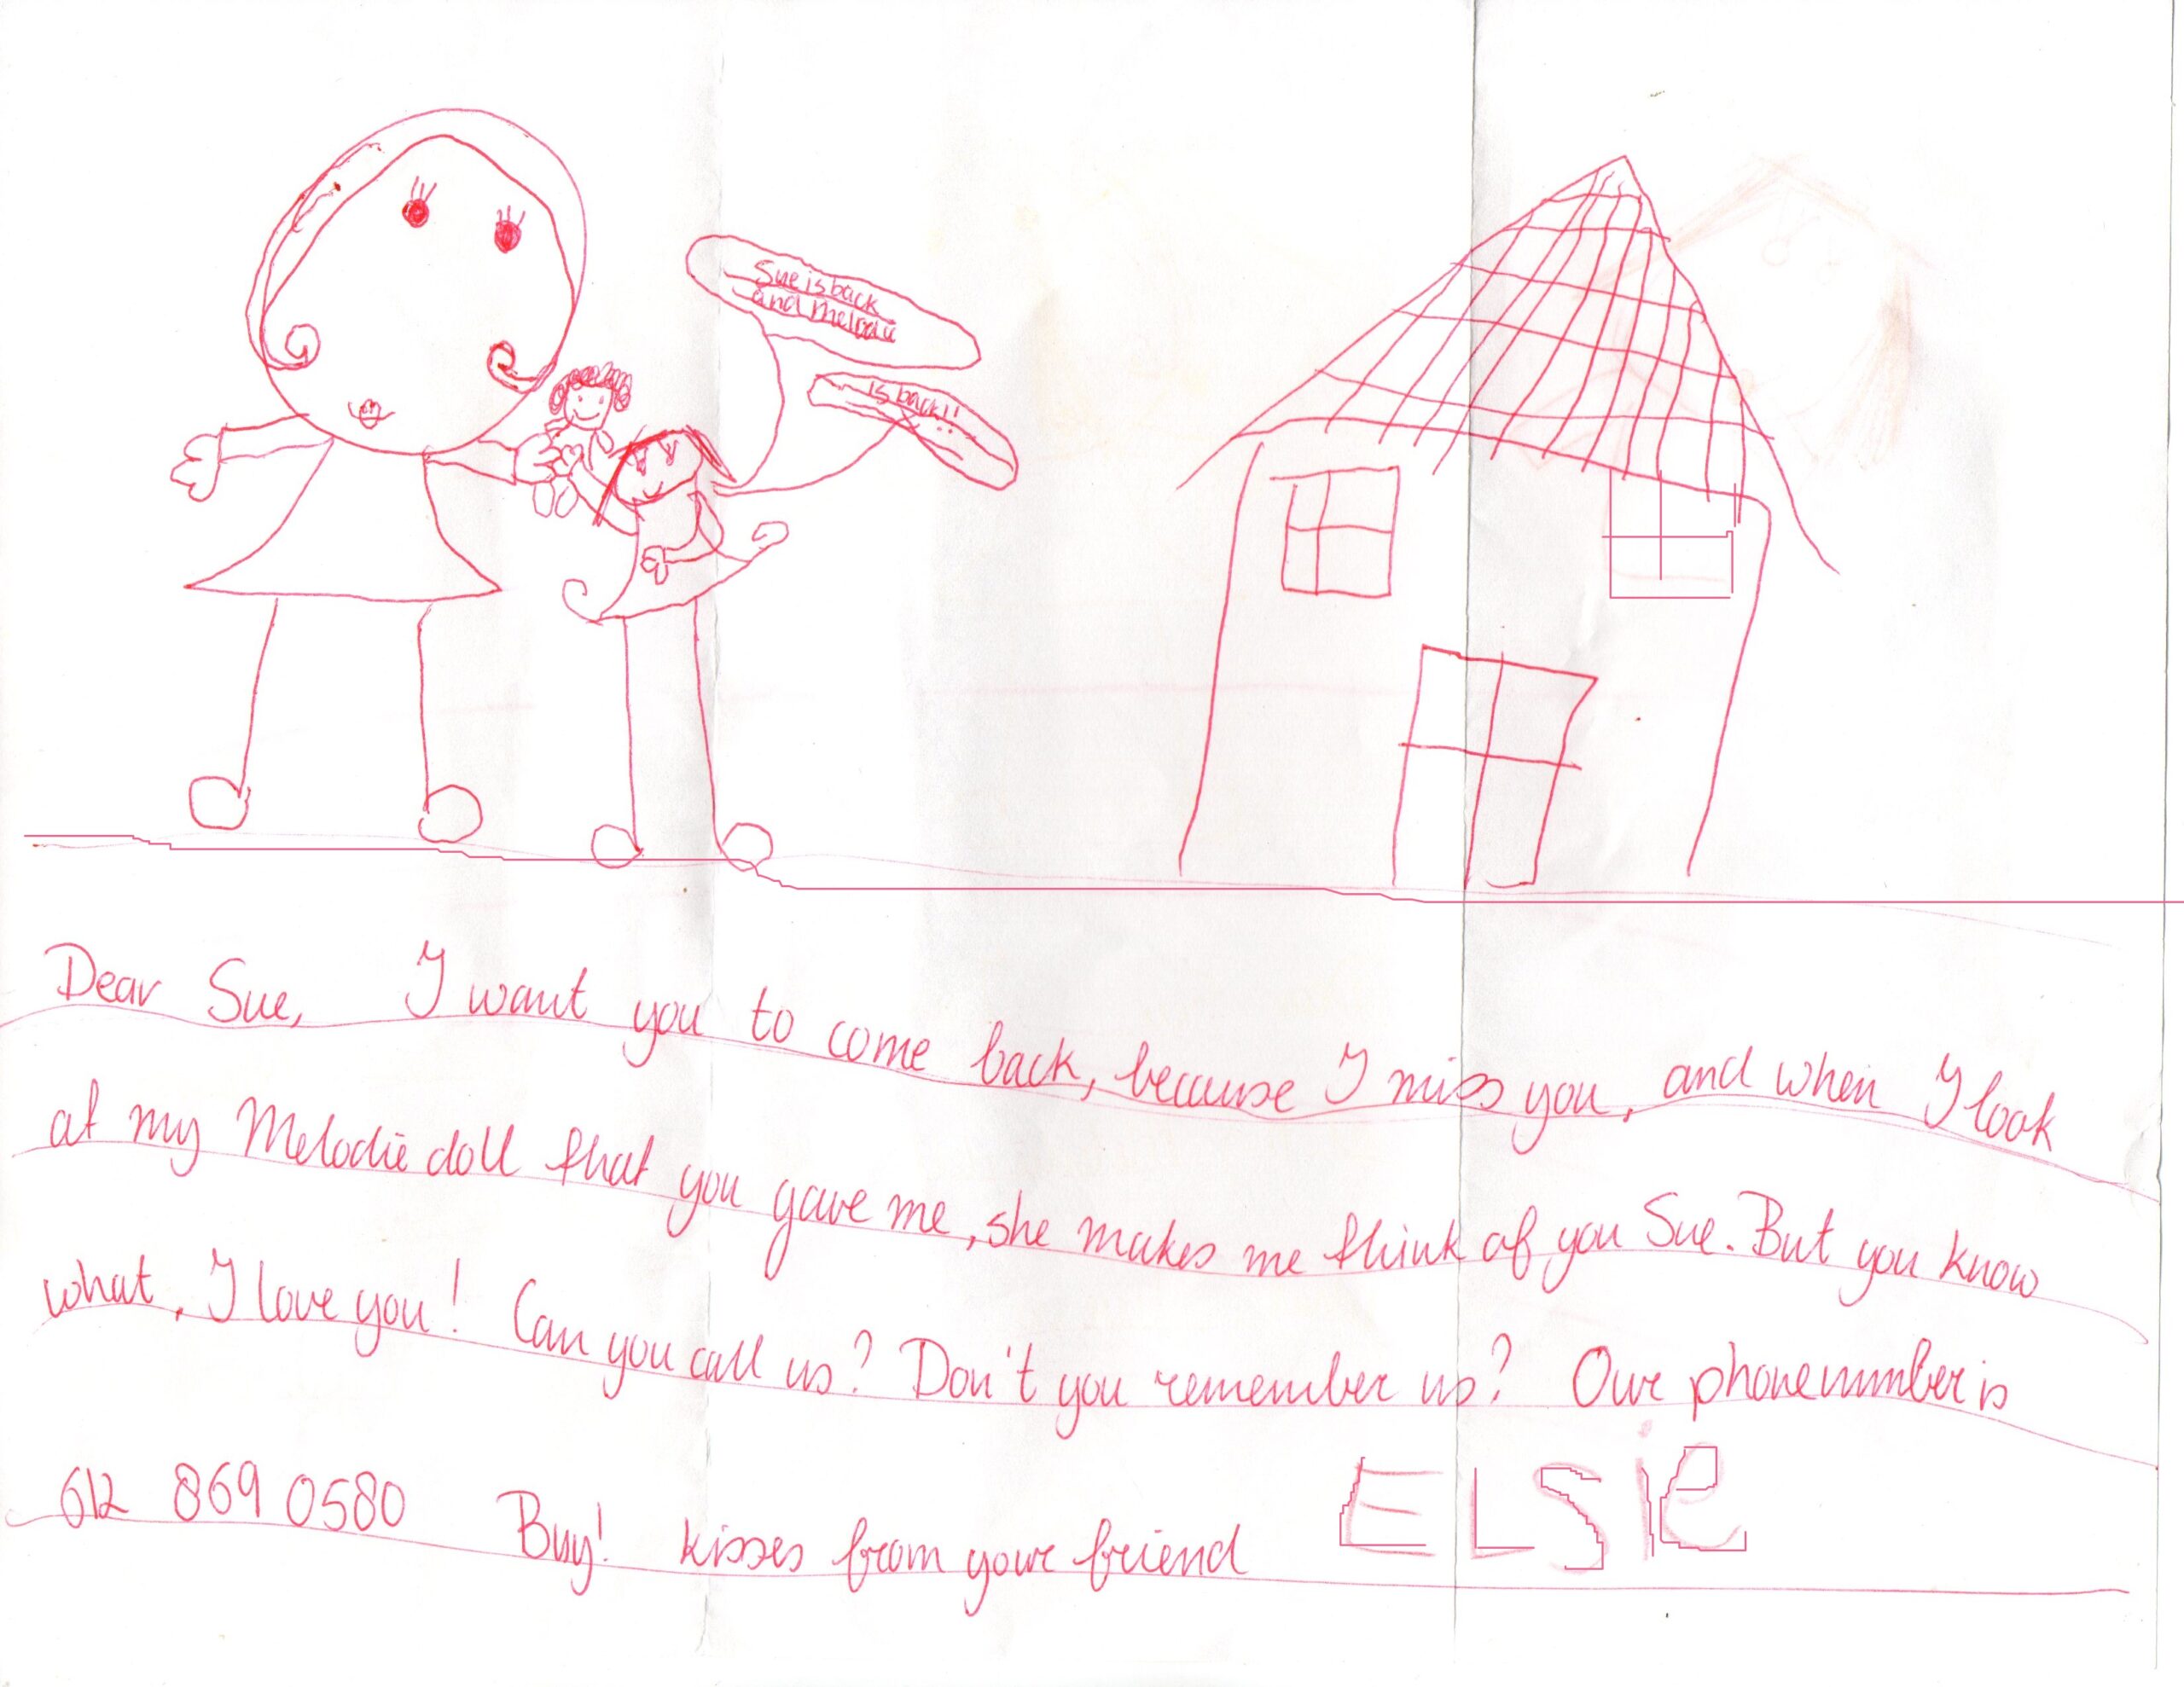 Sue is back
and Melodie
is back!!
Dear Sue, I want you to come back, because I miss you, and when I look
at my Melodie doll that you gave me, she makes me think of you Sue. But you know
what, I love you! Can you call us? Don't you remember us? Our phonenumber is
612 869 0580 Buy! kisses from your friend ELSiE